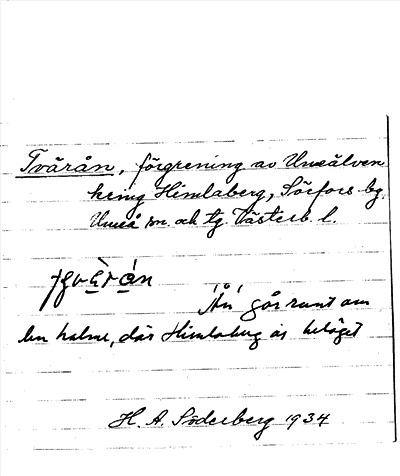 Tvärån, förgrening av Umeälven
kring Himlaberg, Sörfors bg.
Umeå sn. och tg. Västerb. l.
"Ån" går runt om
en holme, där Himlaberg är beläget
H. A. Söderberg 1934